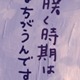 咲く時期は
ちがうんです